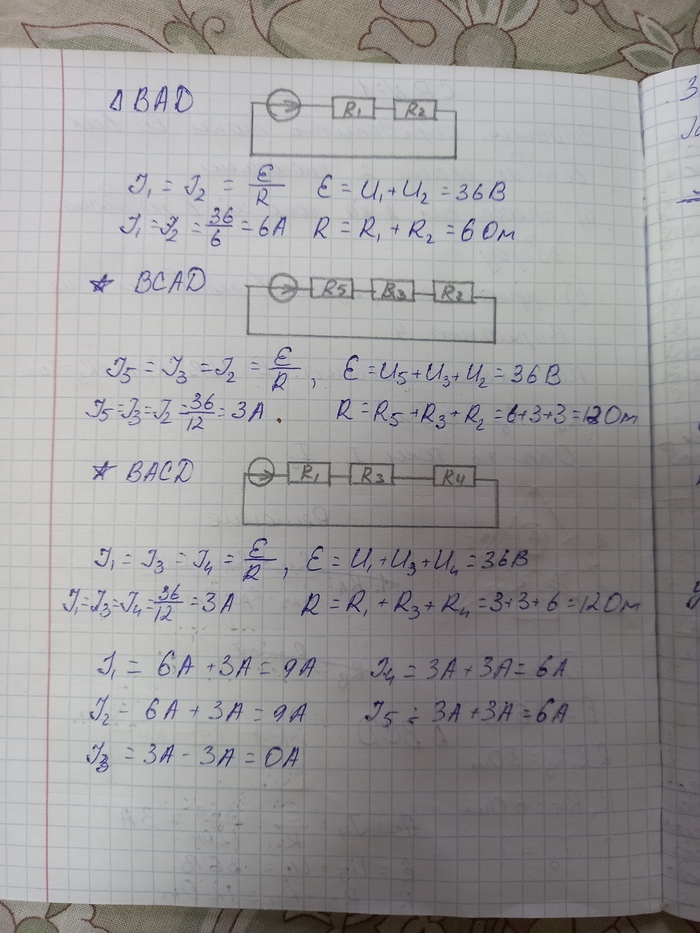 Δ BAD
R₁ R₂
J₁ = J₂ = ε/R ε = U₁ + U₂ = 36 В
J₁ = J₂ = 36/6 = 6A R = R₁ + R₂ = 6 Ом
* BCAD
R5 R3 R2
J₅ = J₃ = J₂ = ε/R, ε = U₅ + U₃ + U₂ = 36 В
J₅ = J₃ = J₂ = 36/12 = 3A. R = R₅ + R₃ + R₂ = 6+3+3 = 12 Ом
* BACD
R₁ R3 R4
J₁ = J₃ = J₄ = ε/R, ε = U₁ + U₃ + U₄ = 36 В
J₁ = J₃ = J₄ = 36/12 = 3A R = R₁ + R₃ + R₄ = 3+3+6 = 12 Ом
J₁ = 6A + 3A = 9A J₄ = 3A + 3A = 6A
J₂ = 6A + 3A = 9A J₅ = 3A + 3A = 6A
J₃ = 3A - 3A = 0A